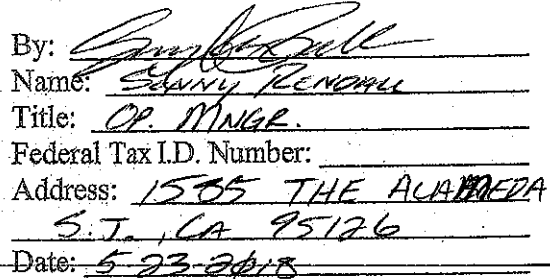 By:
Name: Sonny Rendall
Title: OP. MNGR.
Federal Tax I.D. Number:
Address: 1585 THE ALAMEDA
S.J., CA 95126
Date: 5-23-2018